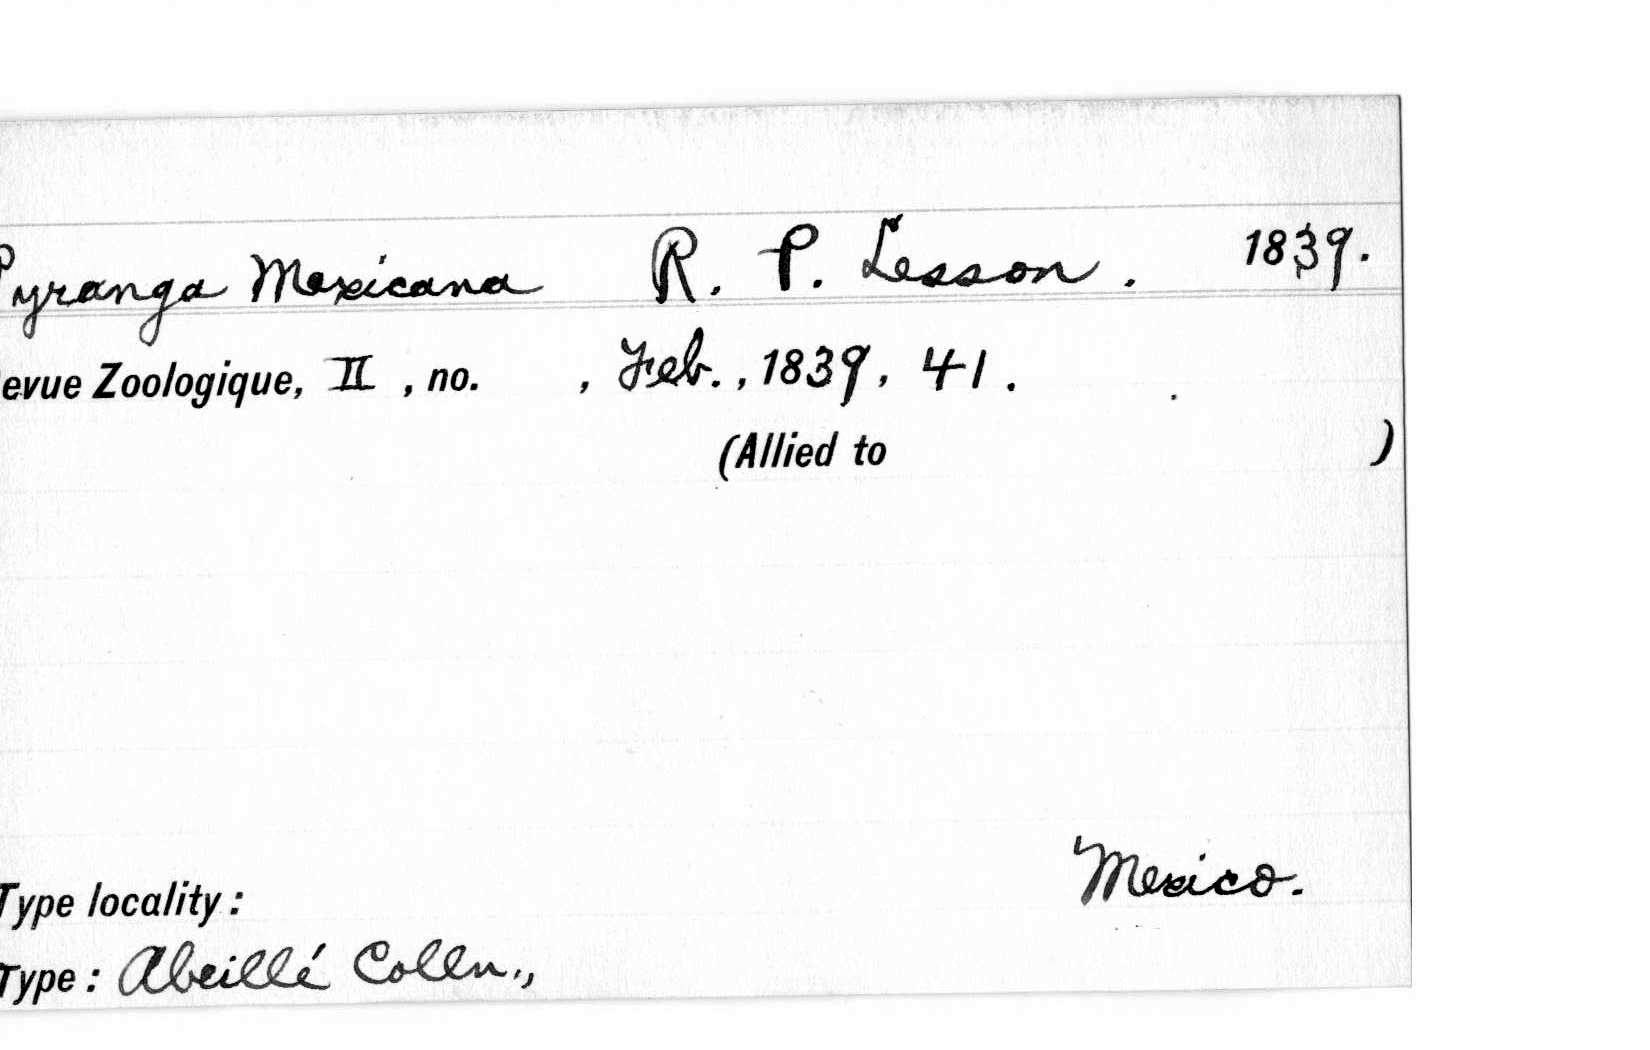 Pyranga Mexicana R. P. Lesson. 1839.
evue Zoologique, II, no. , Feb., 1839, 41.
(Allied to )
Mexico.
Type locality:
Type: Abeillé Colln.,